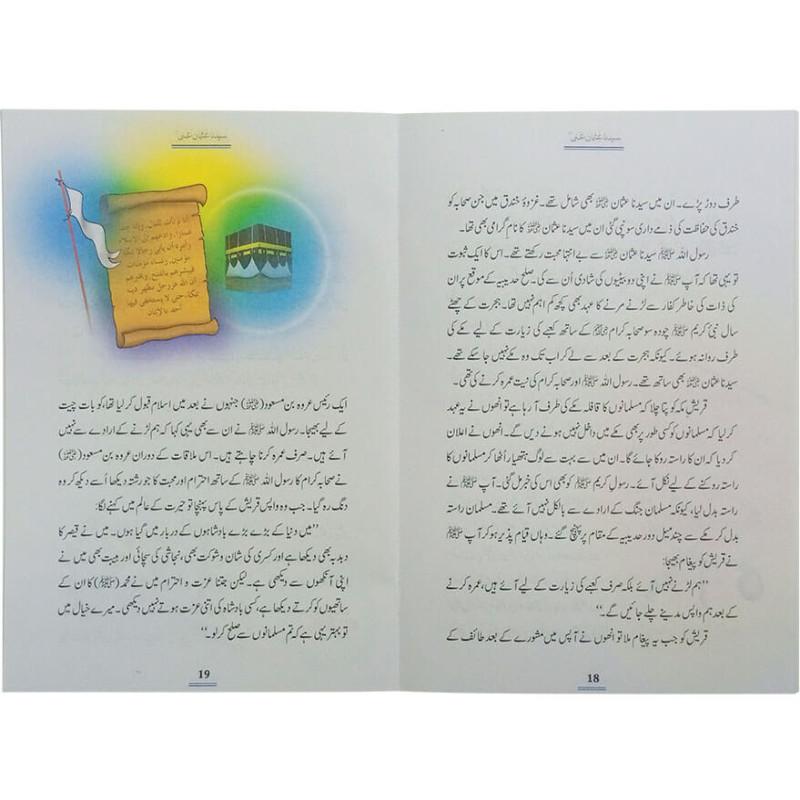 سیدنا عثمان غنیؓ
طرف دوڑ پڑے۔ ان میں سیدنا عثمان ؓ بھی شامل تھے۔ غزوۂ خندق میں جن صحابہ کو
خندق کی حفاظت کی ذمے داری سونپی گئی ان میں سیدنا عثمان ؓ کا نام گرامی بھی تھا۔
رسول اللہ ﷺ سیدنا عثمان ؓ سے بے انتہا محبت رکھتے تھے۔ اس کا ایک ثبوت
تو یہی تھا کہ آپ ﷺ نے اپنی دو بیٹیوں کی شادی اُن سے کی۔ صلح حدیبیہ کے موقع پر ان
کی ذات کی خاطر کفار سے لڑنے مرنے کا عہد بھی کچھ کم اہم نہیں تھا۔ ہجرت کے چھٹے
سال نبیٔ کریم ﷺ چودہ سو صحابہ کرام ؓ کے ساتھ کعبے کی زیارت کے لیے مکے کی
طرف روانہ ہوئے۔ کیونکہ ہجرت کے بعد سے لے کر اب تک وہ مکے نہیں جا سکے تھے۔
سیدنا عثمان ؓ بھی ساتھ تھے۔ رسول اللہ ﷺ اور صحابہ کرام کی نیت عمرہ کرنے کی تھی۔
قریشِ مکہ کو پتا چلا کہ مسلمانوں کا قافلہ مکے کی طرف آ رہا ہے تو انھوں نے یہ عہد
کر لیا کہ مسلمانوں کو کسی طور پر بھی مکے میں داخل نہیں ہونے دیں گے۔ انھوں نے اعلان
کر دیا کہ ان کا راستہ روکا جائے گا۔ ان میں سے بہت سے لوگ ہتھیار اُٹھا کر مسلمانوں کا
راستہ روکنے کے لیے نکل آئے۔ رسولِ کریم ﷺ کو بھی اس کی خبر مل گئی۔ آپ ﷺ نے
راستہ بدل لیا، کیونکہ مسلمان جنگ کے ارادے سے بالکل نہیں آئے تھے۔ مسلمان راستہ
بدل کر مکے سے چند میل دور حدیبیہ کے مقام پر پہنچ گئے۔ وہاں قیام پذیر ہو کر آپ ﷺ
نے قریش کو پیغام بھیجا:
”ہم لڑنے نہیں آئے بلکہ صرف کعبے کی زیارت کے لیے آئے ہیں، عمرہ کرنے
کے بعد ہم واپس مدینے چلے جائیں گے۔“
قریش کو جب یہ پیغام ملا تو انھوں نے آپس میں مشورے کے بعد طائف کے
18
سیدنا عثمان غنیؓ
ایک رئیس عروہ بن مسعود (ؓ) جنہوں نے بعد میں اسلام قبول کر لیا تھا، کو بات چیت
کے لیے بھیجا۔ رسول اللہ ﷺ نے ان سے بھی یہی کہا کہ ہم لڑنے کے ارادے سے نہیں
آئے ہیں۔ صرف عمرہ کرنا چاہتے ہیں۔ اس ملاقات کے دوران عروہ بن مسعود (ؓ)
نے صحابہ کرام کا رسول اللہ ﷺ کے ساتھ احترام اور محبت کا جو رشتہ دیکھا اُسے دیکھ کر وہ
دنگ رہ گیا۔ جب وہ واپس قریش کے پاس پہنچا تو حیرت کے عالم میں کہنے لگا:
”میں دنیا کے بڑے بڑے بادشاہوں کے دربار میں گیا ہوں۔ میں نے قیصر کا
دبدبہ بھی دیکھا ہے اور کسریٰ کی شان و شوکت بھی، نجاشی کی سچائی اور ہیبت بھی میں نے
اپنی آنکھوں سے دیکھی ہے۔ لیکن جتنا عزت و احترام میں نے محمد (ﷺ) کا ان کے
ساتھیوں کو کرتے دیکھا ہے، کسی بادشاہ کی اتنی عزت ہوتے نہیں دیکھی۔ میرے خیال میں
تو بہتر یہی ہے کہ تم مسلمانوں سے صلح کر لو۔“
19